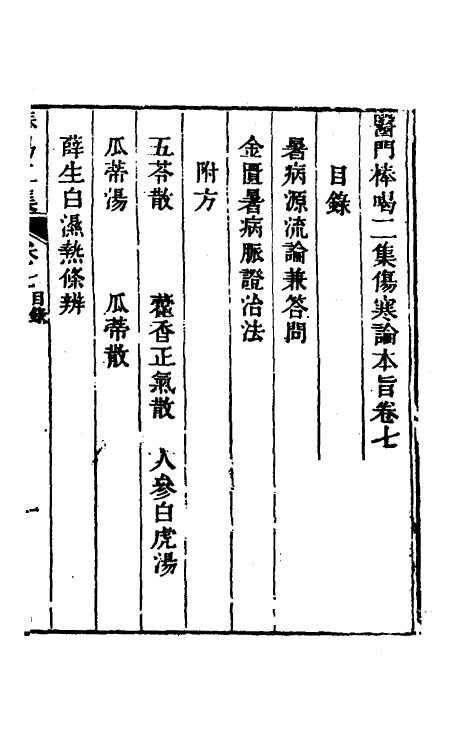 醫門棒喝二集傷寒論本旨卷七
目錄
暑病源流論兼答問
金匱暑病脈證治法
附方
五苓散 藿香正氣散 人參白虎湯
瓜蒂湯 瓜蒂散
薛生白濕熱條辨
卷七 目錄 一